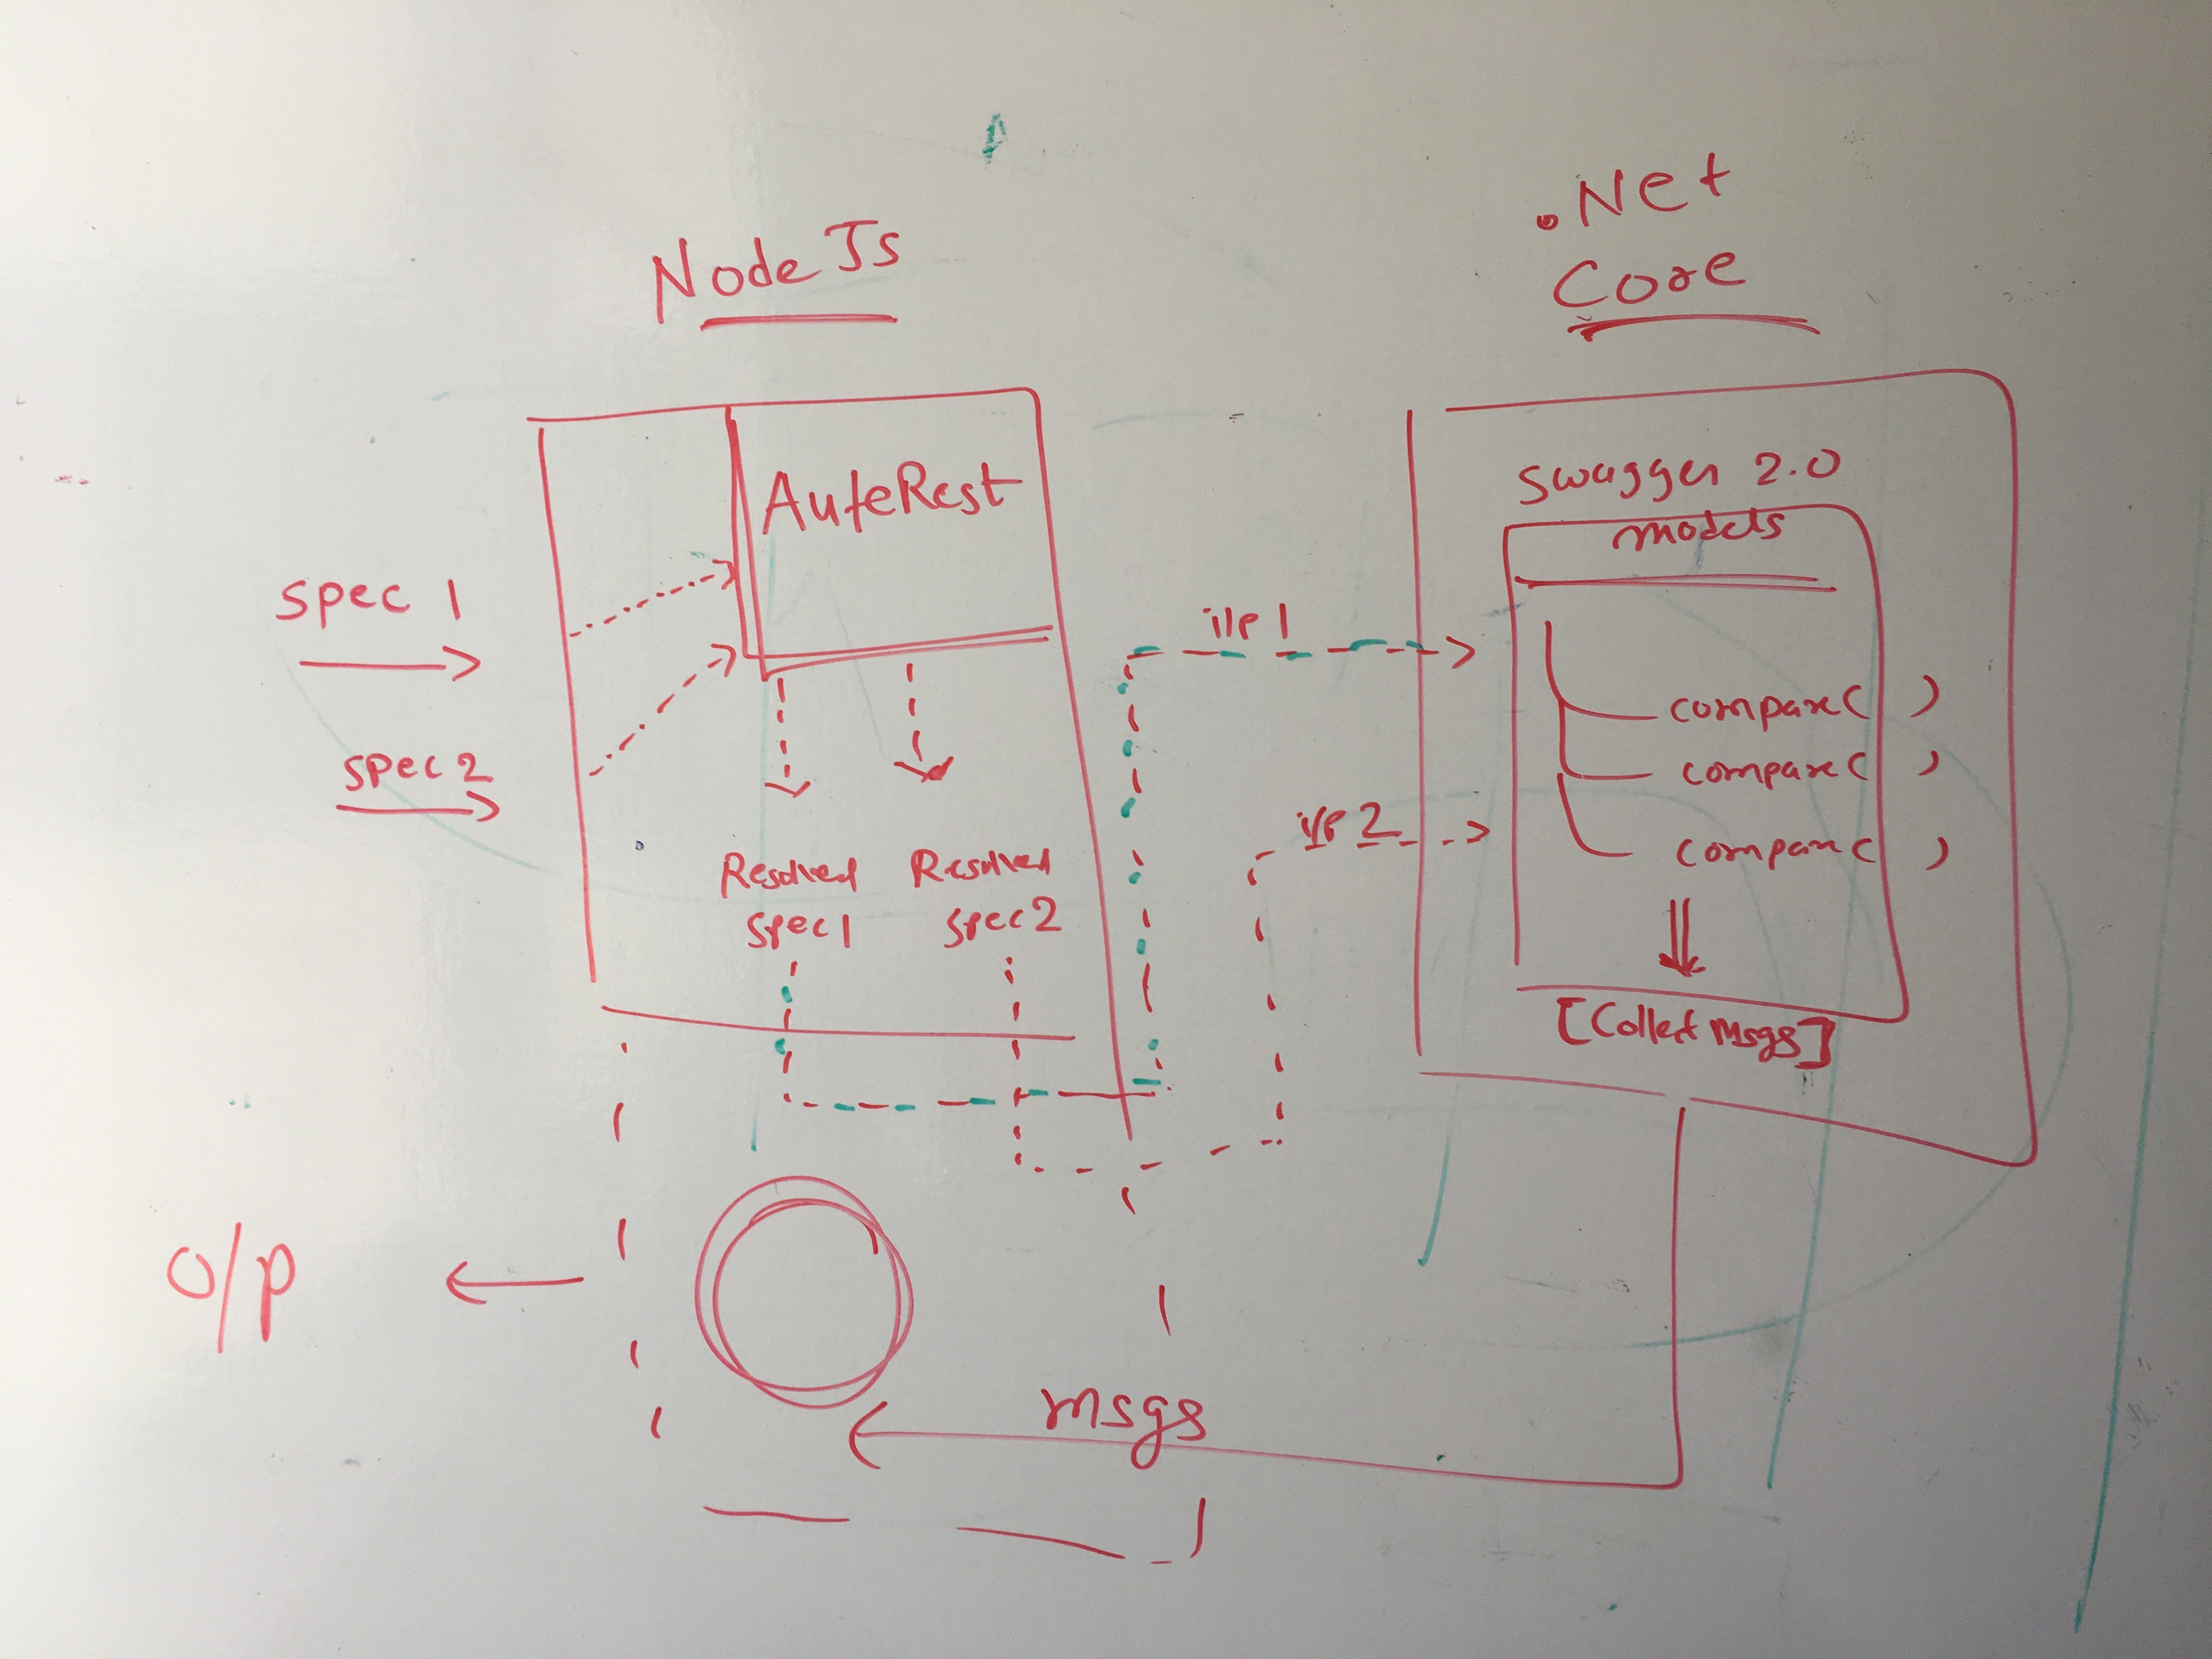 Node Js
.Net
Core
AutoRest
Swagger 2.0
models
spec 1
spec 2
i/p 1
i/p 2
compare( )
compare( )
compare( )
Resolved
spec1
Resolved
spec2
[Collect Msgs]
O/P
msgs